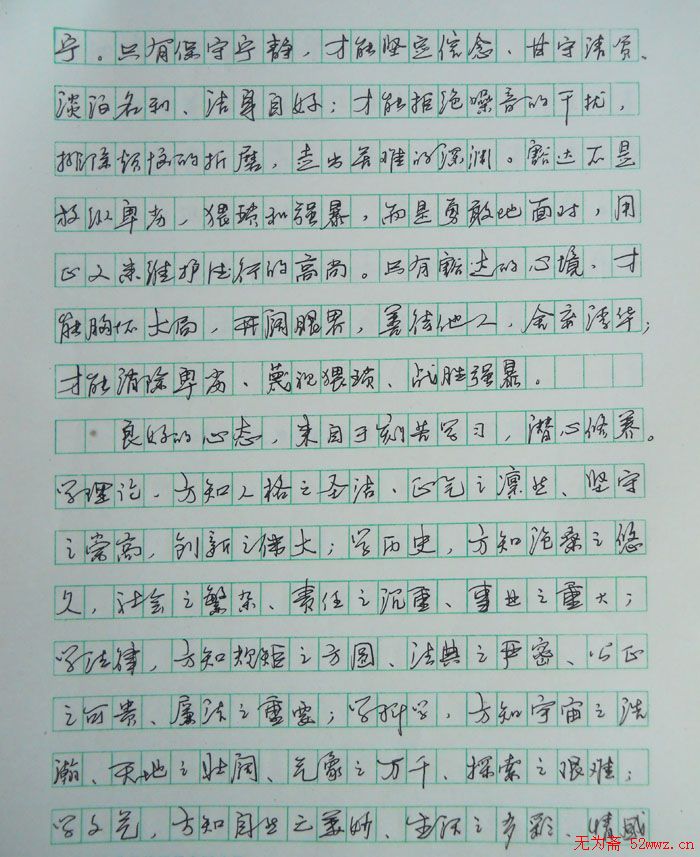 宁。只有保守宁静，才能坚定信念、甘守清贫、
淡泊名利、洁身自好；才能拒绝噪音的干扰，
排除烦恼的折磨，走出苦难的深渊。豁达不是
放纵卑劣，猥琐和强暴，而是勇敢地面对，用
正义来维护德行的高尚。只有豁达的心境，才
能胸怀大局，开阔眼界，善待他人，舍弃浮华；
才能消除卑劣、蔑视猥琐、战胜强暴。
良好的心态，来自于刻苦学习，潜心修养。
学理论，方知人格之圣洁、正气之凛然、坚守
之崇高，创新之伟大；学历史，方知沧桑之悠
久，社会之繁杂、责任之沉重、事业之重大；
学法律，方知规矩之方圆、法典之严密、公正
之可贵、廉洁之重要；学科学，方知宇宙之浩
瀚、天地之壮阔、气象之万千、探索之艰难；
学文艺，方知自然之美妙、生活之多彩、情感
无为斋 52wwz.cn